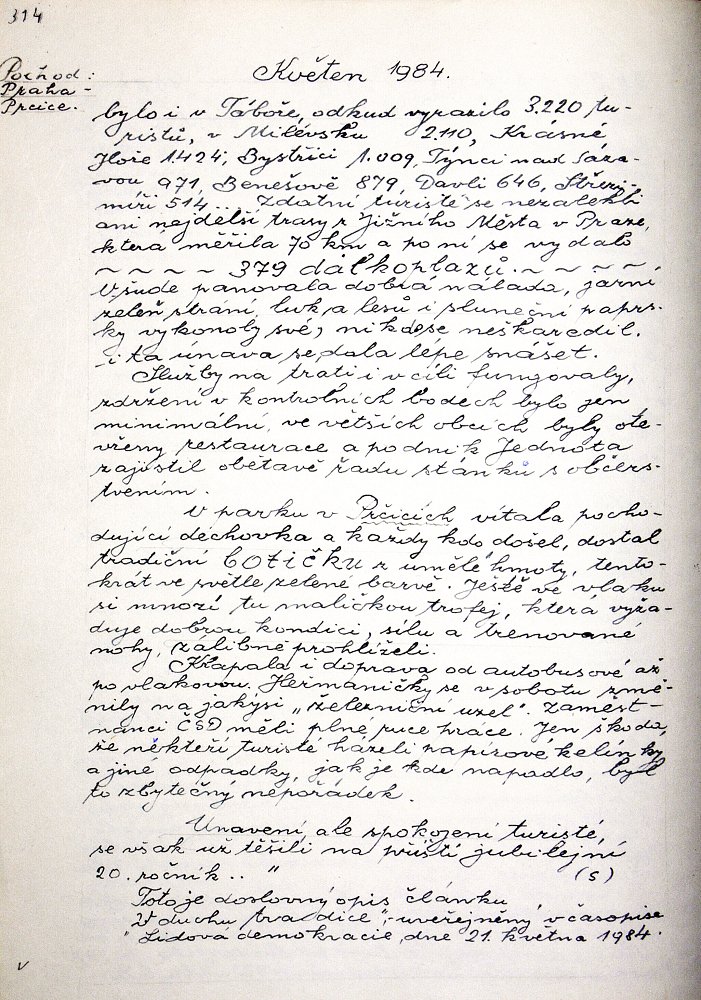 314
Pochod:
Praha -
Prčice.
Květen 1984.
bylo i v Táboře, odkud vyrazilo 3.220 tu-
ristů, v Milévsku 2.110, Krásné
Hoře 1424, Bystřici 1.009, Týnci nad Sáza-
vou 971, Benešově 879, Davli 646, Střezi-
míři 514... Zdatní turisté se nezalekli
ani nejdelší trasy z Jižního Města v Praze,
která měřila 70 km a po ní se vydalo
~ ~ ~ ~ 379 dálkoplazů. ~ ~ ~ ~
Všude panovala dobrá nálada, jarní
zeleň, strání, luk a lesů i sluneční paprs-
ky vykonaly své, nikdo se neškaredil.
i ta únava se dala lépe snášet.
Služby na trati i v cíli fungovaly,
zdržení v kontrolních bodech bylo jen
minimální, ve větších obcích byly ote-
vřeny restaurace a podnik Jednota
zajistil obětavě řadu stánků s občers-
tvením.
V parku v Prčicích vítala pocho-
dující dechovka a každý kdo došel, dostal
tradiční botičku z umělé hmoty, tento-
krát ve světle zelené barvě. Ještě ve vlaku
si mnozí tu maličkou trofej, která vyža-
duje dobrou kondici, sílu a trénované
nohy, zálibně prohlíželi.
Klapala i doprava od autobusové až
po vlakovou. Heřmaničky se v sobotu změ-
nily na jakýsi „železniční uzel". Zaměst-
nanci ČSD měli plné ruce práce. Jen škoda,
že někteří turisté házeli papírové kelímky
a jiné odpadky, jak je kde napadlo, byl
to zbytečný nepořádek.
Unavení, ale spokojení turisté,
se však už těšili na příští jubilejní
20. ročník.. " (s)
Toto je doslovný opis článku,
"V duchu tradice", uveřejněný v časopise
"Lidová demokracie, dne 21. května 1984.
v